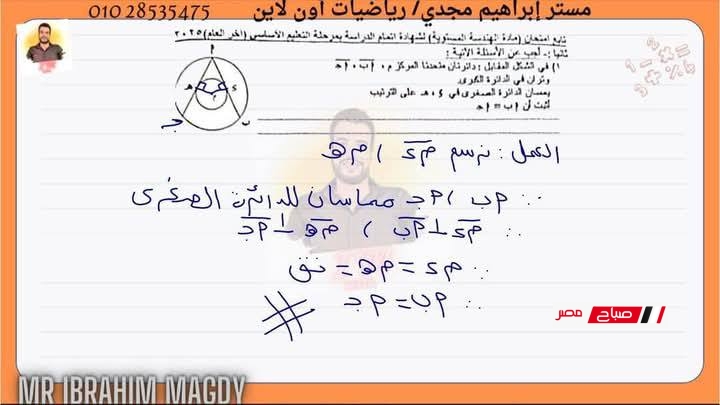 مستر إبراهيم مجدي/ رياضيات أون لاين 010 28535475
تابع امتحان (مادة الهندسة المستوية) لشهادة اتمام الدراسة بمرحلة التعليم الأساسي (آخر العام) ٢٠٢٥
ثانيا :- أجب عن الأسئلة الآتية :
١) في الشكل المقابل : دائرتان متحدتا المركز م ، أب ، أج
وتران في الدائرة الكبرى
يمسان الدائرة الصغرى في د ، هـ على الترتيب
أثبت أن أب = أج
أ
هـ
م
د
ج
ب
العمل : نرسم م د ، م هـ
∵ أب ، أج مماسان للدائرة الصغرى
∴ م د ⊥ أب ، م هـ ⊥ أج
∵ م د = م هـ = نق
∴ أب = أج #
صباح مصر
MR IBRAHIM MAGDY